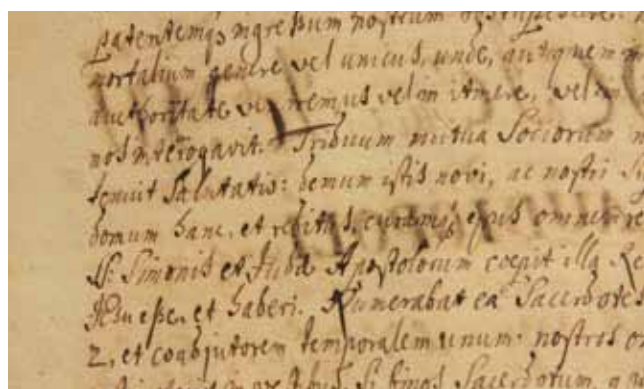 patentemq; ingressum nostrum obstupescere.
mortalium genere vel unicus, unde, aut quem
authoritate veniremus vel in itinere, vel in
nos interrogavit. Triduum mutua Sociorum
tenuit Salutatio: demum istis novi, ac nostri
domum hanc, et reditus, curamq; ejus omnem
SS. Simonis et Judæ Apostolorum coepit illa
JEsu esse, et haberi. Numerabat ea Sacerdotes
2, et coadjutorem temporalem unum: nostros